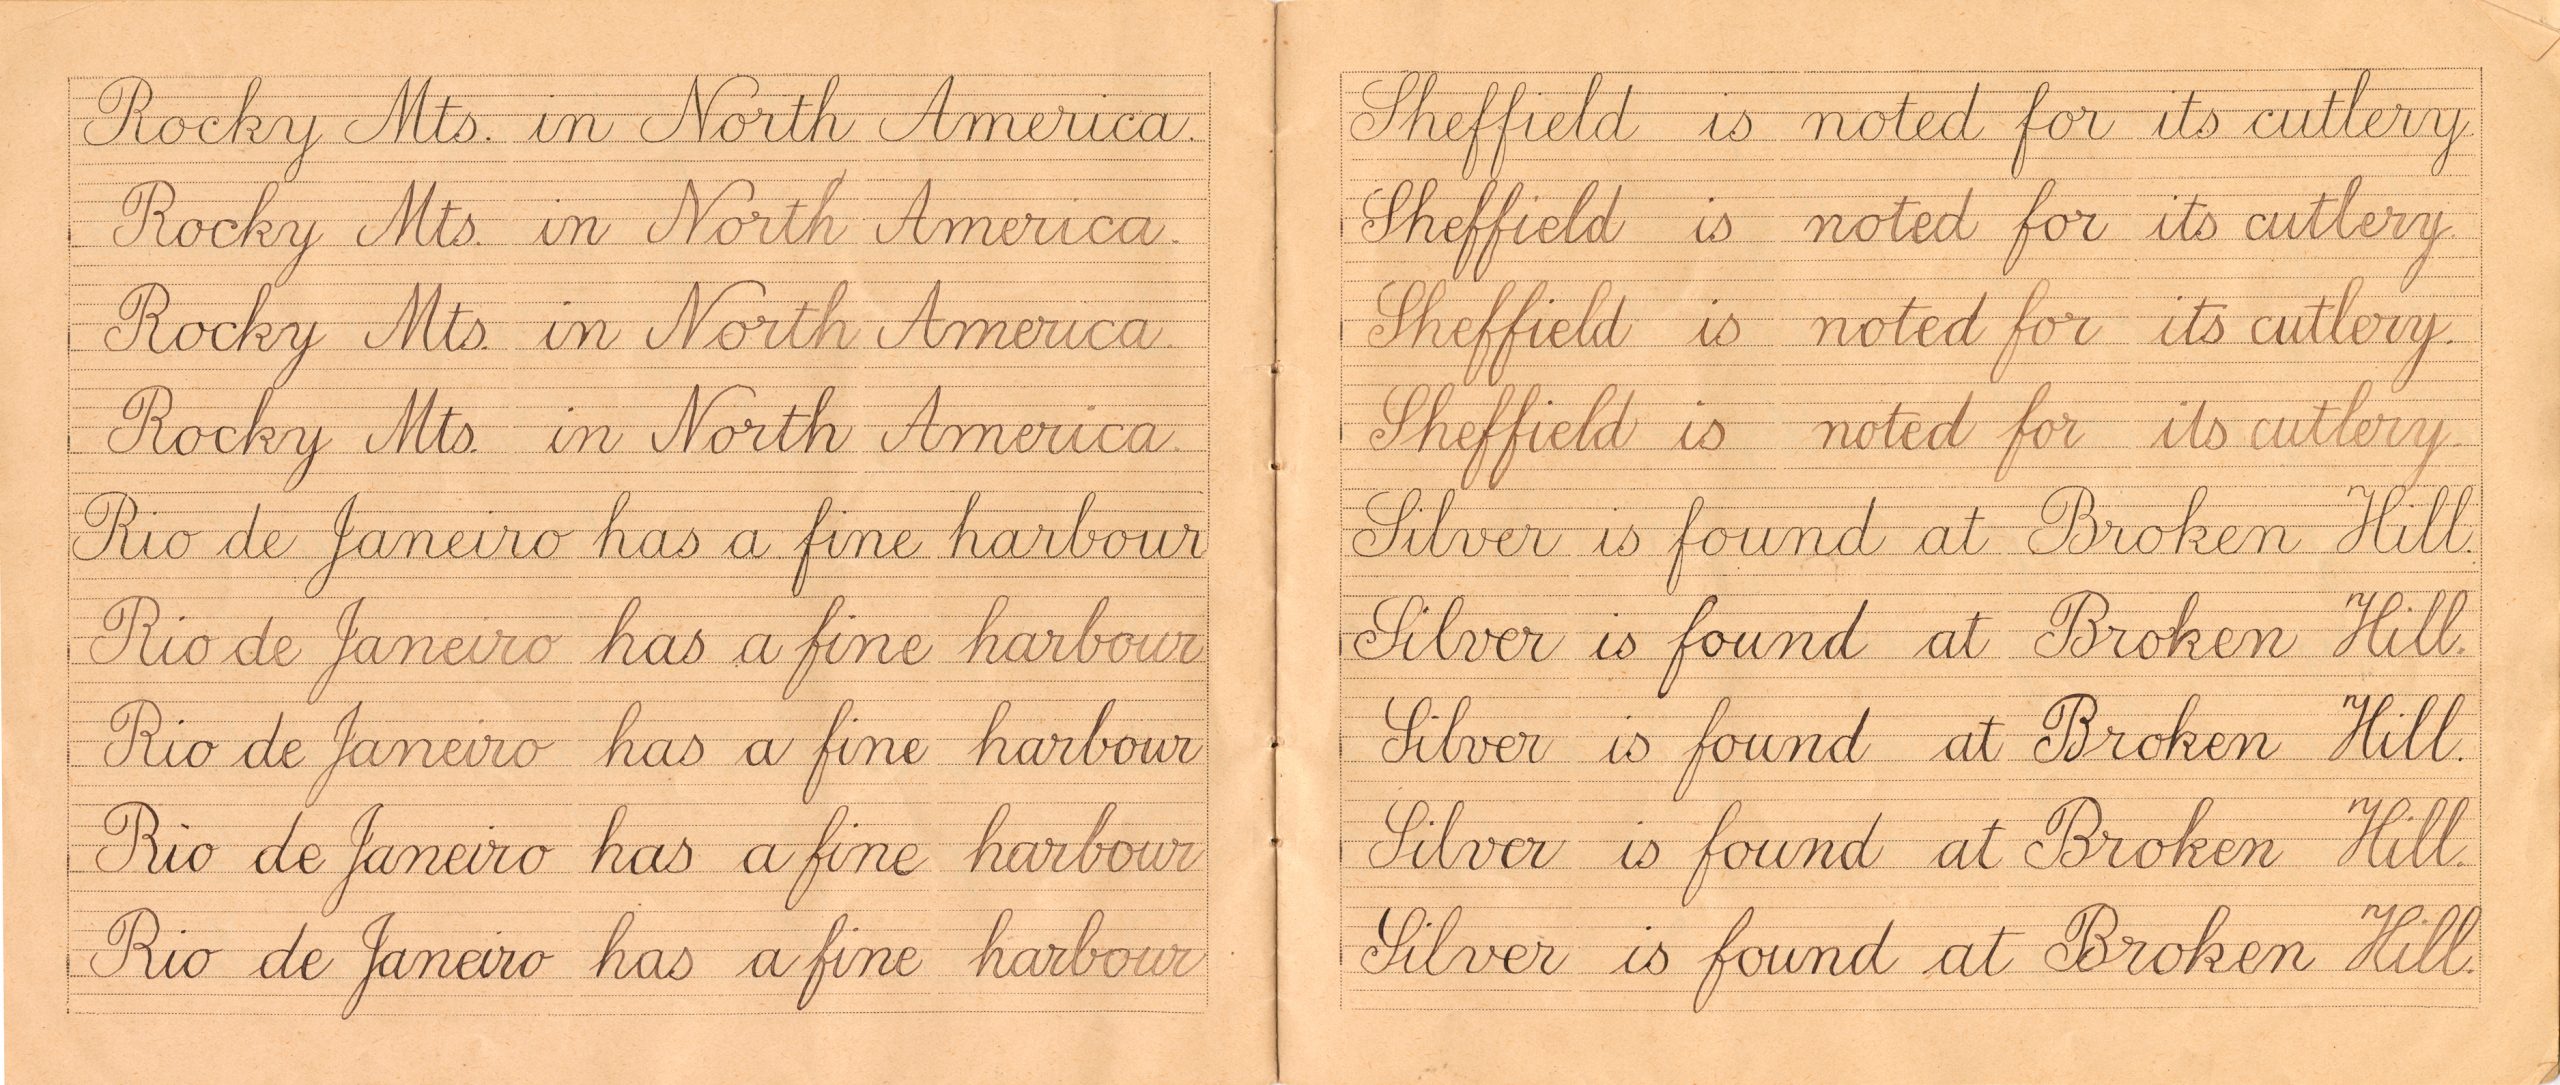 Rocky Mts. in North America.
Rocky Mts. in North America.
Rocky Mts. in North America.
Rocky Mts. in North America.
Rio de Janeiro has a fine harbour
Rio de Janeiro has a fine harbour
Rio de Janeiro has a fine harbour
Rio de Janeiro has a fine harbour
Rio de Janeiro has a fine harbour
Sheffield is noted for its cutlery.
Sheffield is noted for its cutlery.
Sheffield is noted for its cutlery.
Sheffield is noted for its cutlery.
Silver is found at Broken Hill.
Silver is found at Broken Hill.
Silver is found at Broken Hill.
Silver is found at Broken Hill.
Silver is found at Broken Hill.